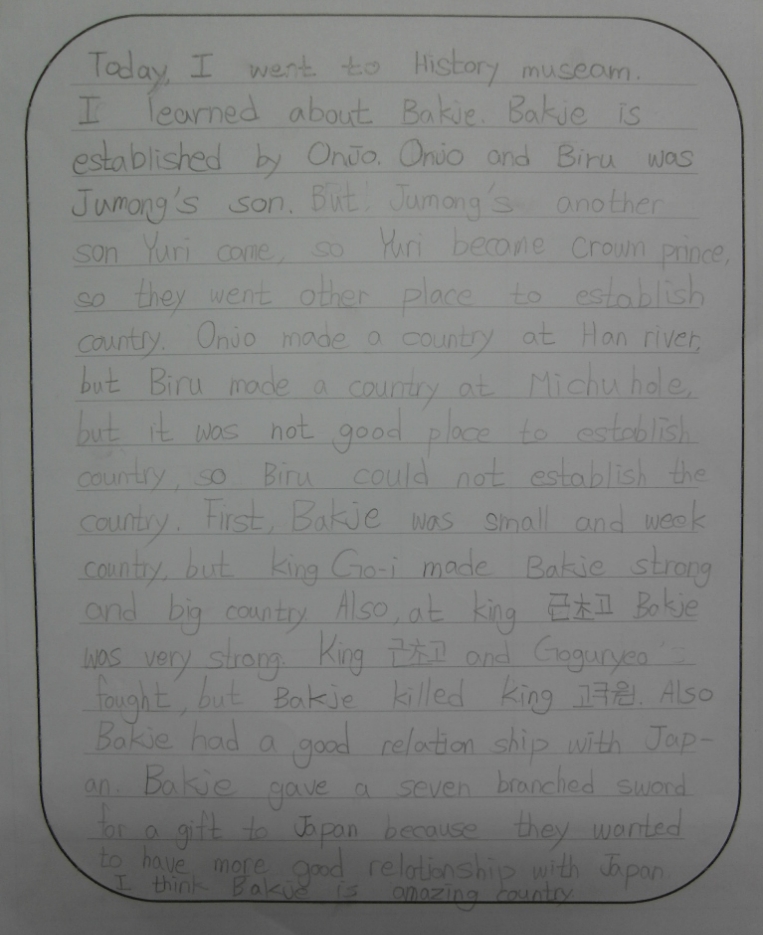 Today, I went to History museam.
I learned about Bakje. Bakje is
established by Onjo. Onjo and Biru was
Jumong's son. But! Jumong's another
son Yuri come, so Yuri become crown prince,
so they went other place to establish
country. Onjo made a country at Han river,
but Biru made a country at Michuhole,
but it was not good place to establish
country, so Biru could not establish the
country. First, Bakje was small and week
country, but king Go-i made Bakje strong
and big country Also, at king 근초고 Bakje
was very strong. King 근초고 and Goguryeo's
fought, but Bakje killed king 고국원. Also
Bakje had a good relation ship with Jap-
an. Bakje gave a seven branched sword
for a gift to Japan because they wanted
to have more good relationship with Japan
I think Bakje is amazing country.